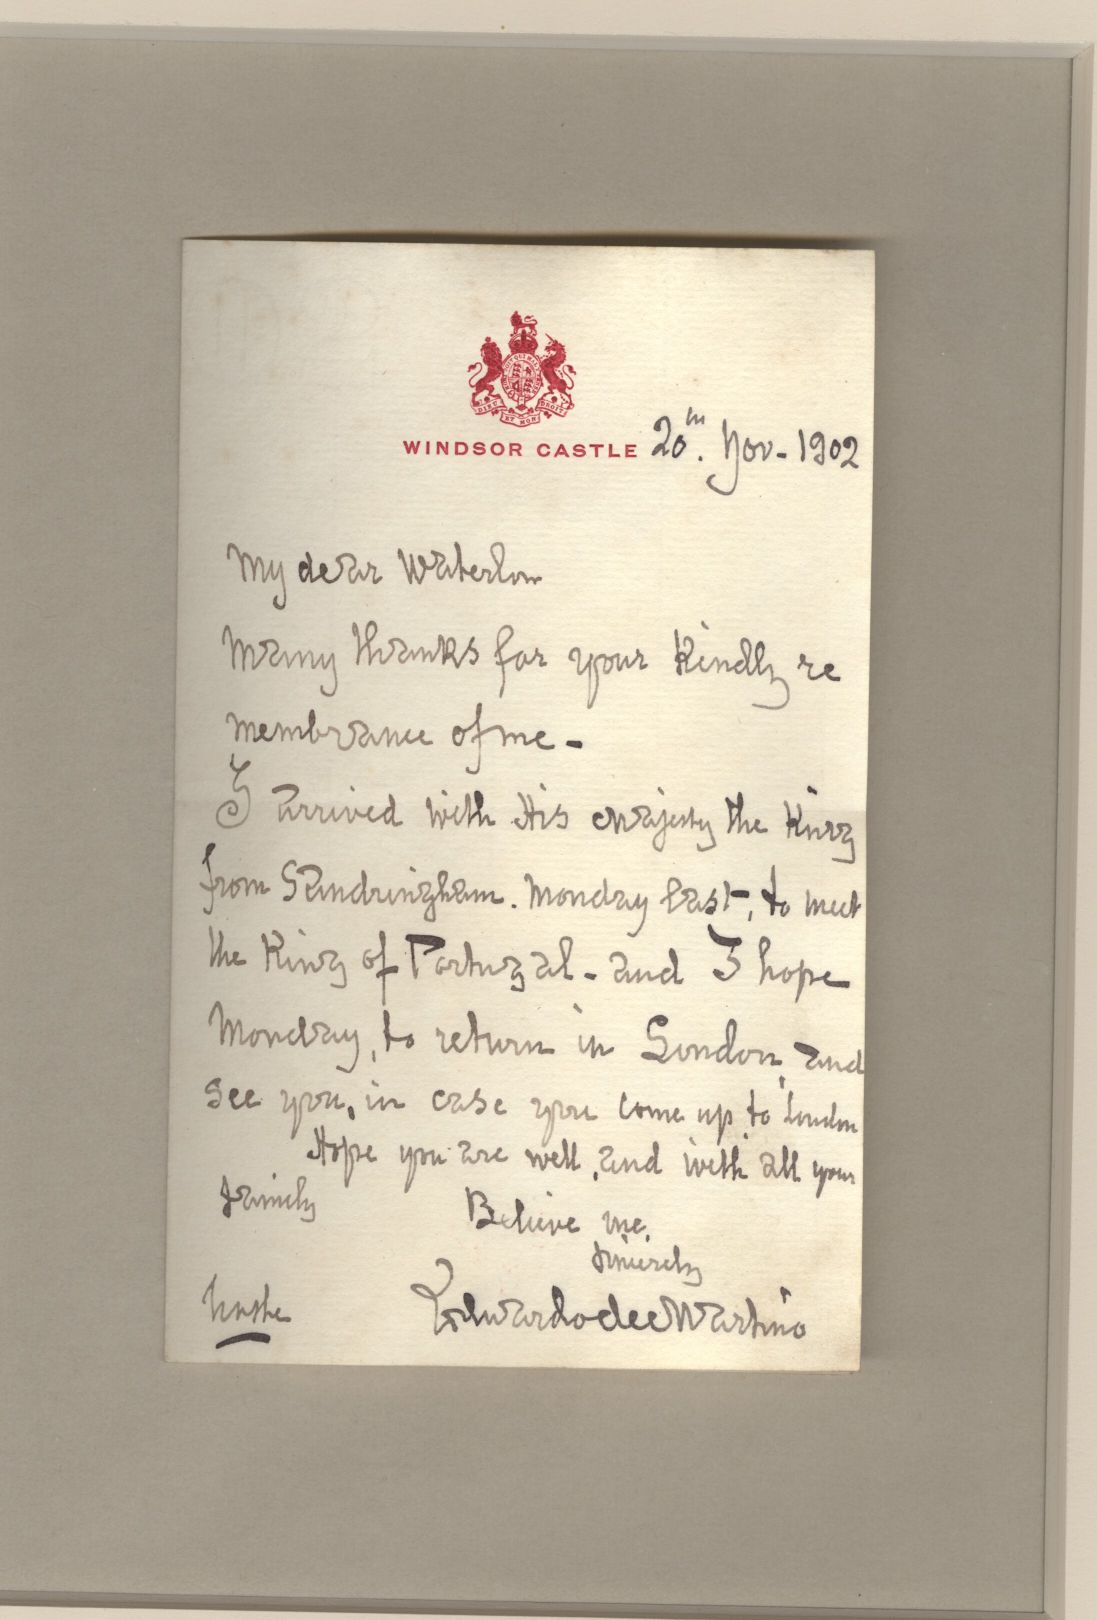 DIEU ET MON DROIT
WINDSOR CASTLE 20th. Nov - 1902
My dear Waterlow
Many thanks for your Kindly re
membrance of me -
I arrived with His Majesty the King
from Sandringham. Monday last, to meet
the King of Portugal - and I hope
Monday, to return in London, and
see you, in case you come up to London
Hope you are well, and with all your
family
Believe me,
Sincerely
Eduardo de Martino